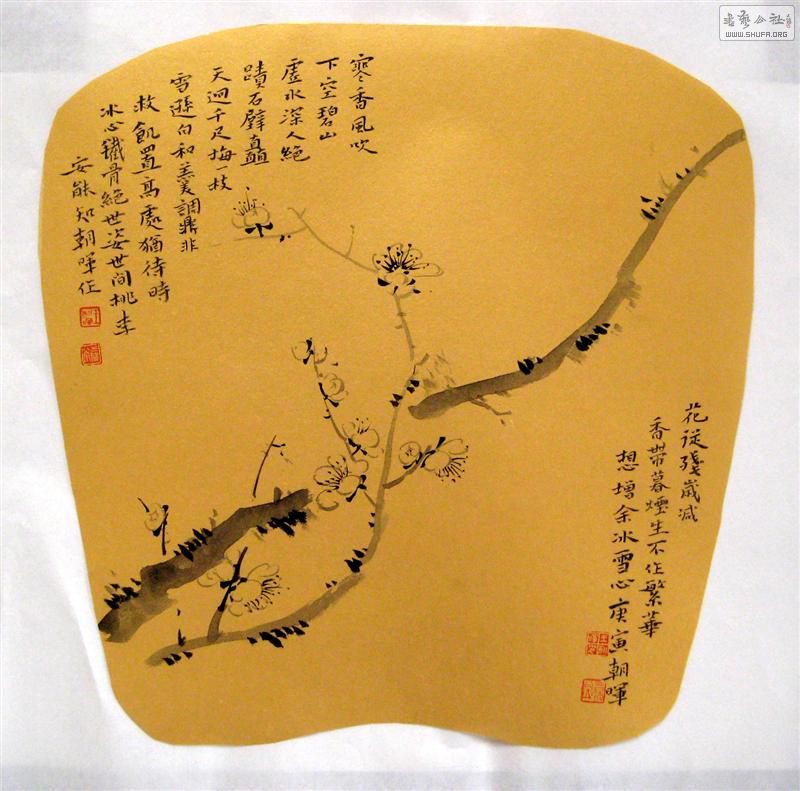 寒香風吹
下空碧山
虛水深人絕
蹟石壁矗
天迥千尺梅一枝
雪遜白和羹調鼎非
救飢置高處猶待時
冰心鐵骨絕世姿世间桃李
安能知朝暉作
花從殘歲減
香帶暮煙生不作繁華
想增余冰雪心庚寅朝暉
書藝公社
WWW.SHUFA.ORG